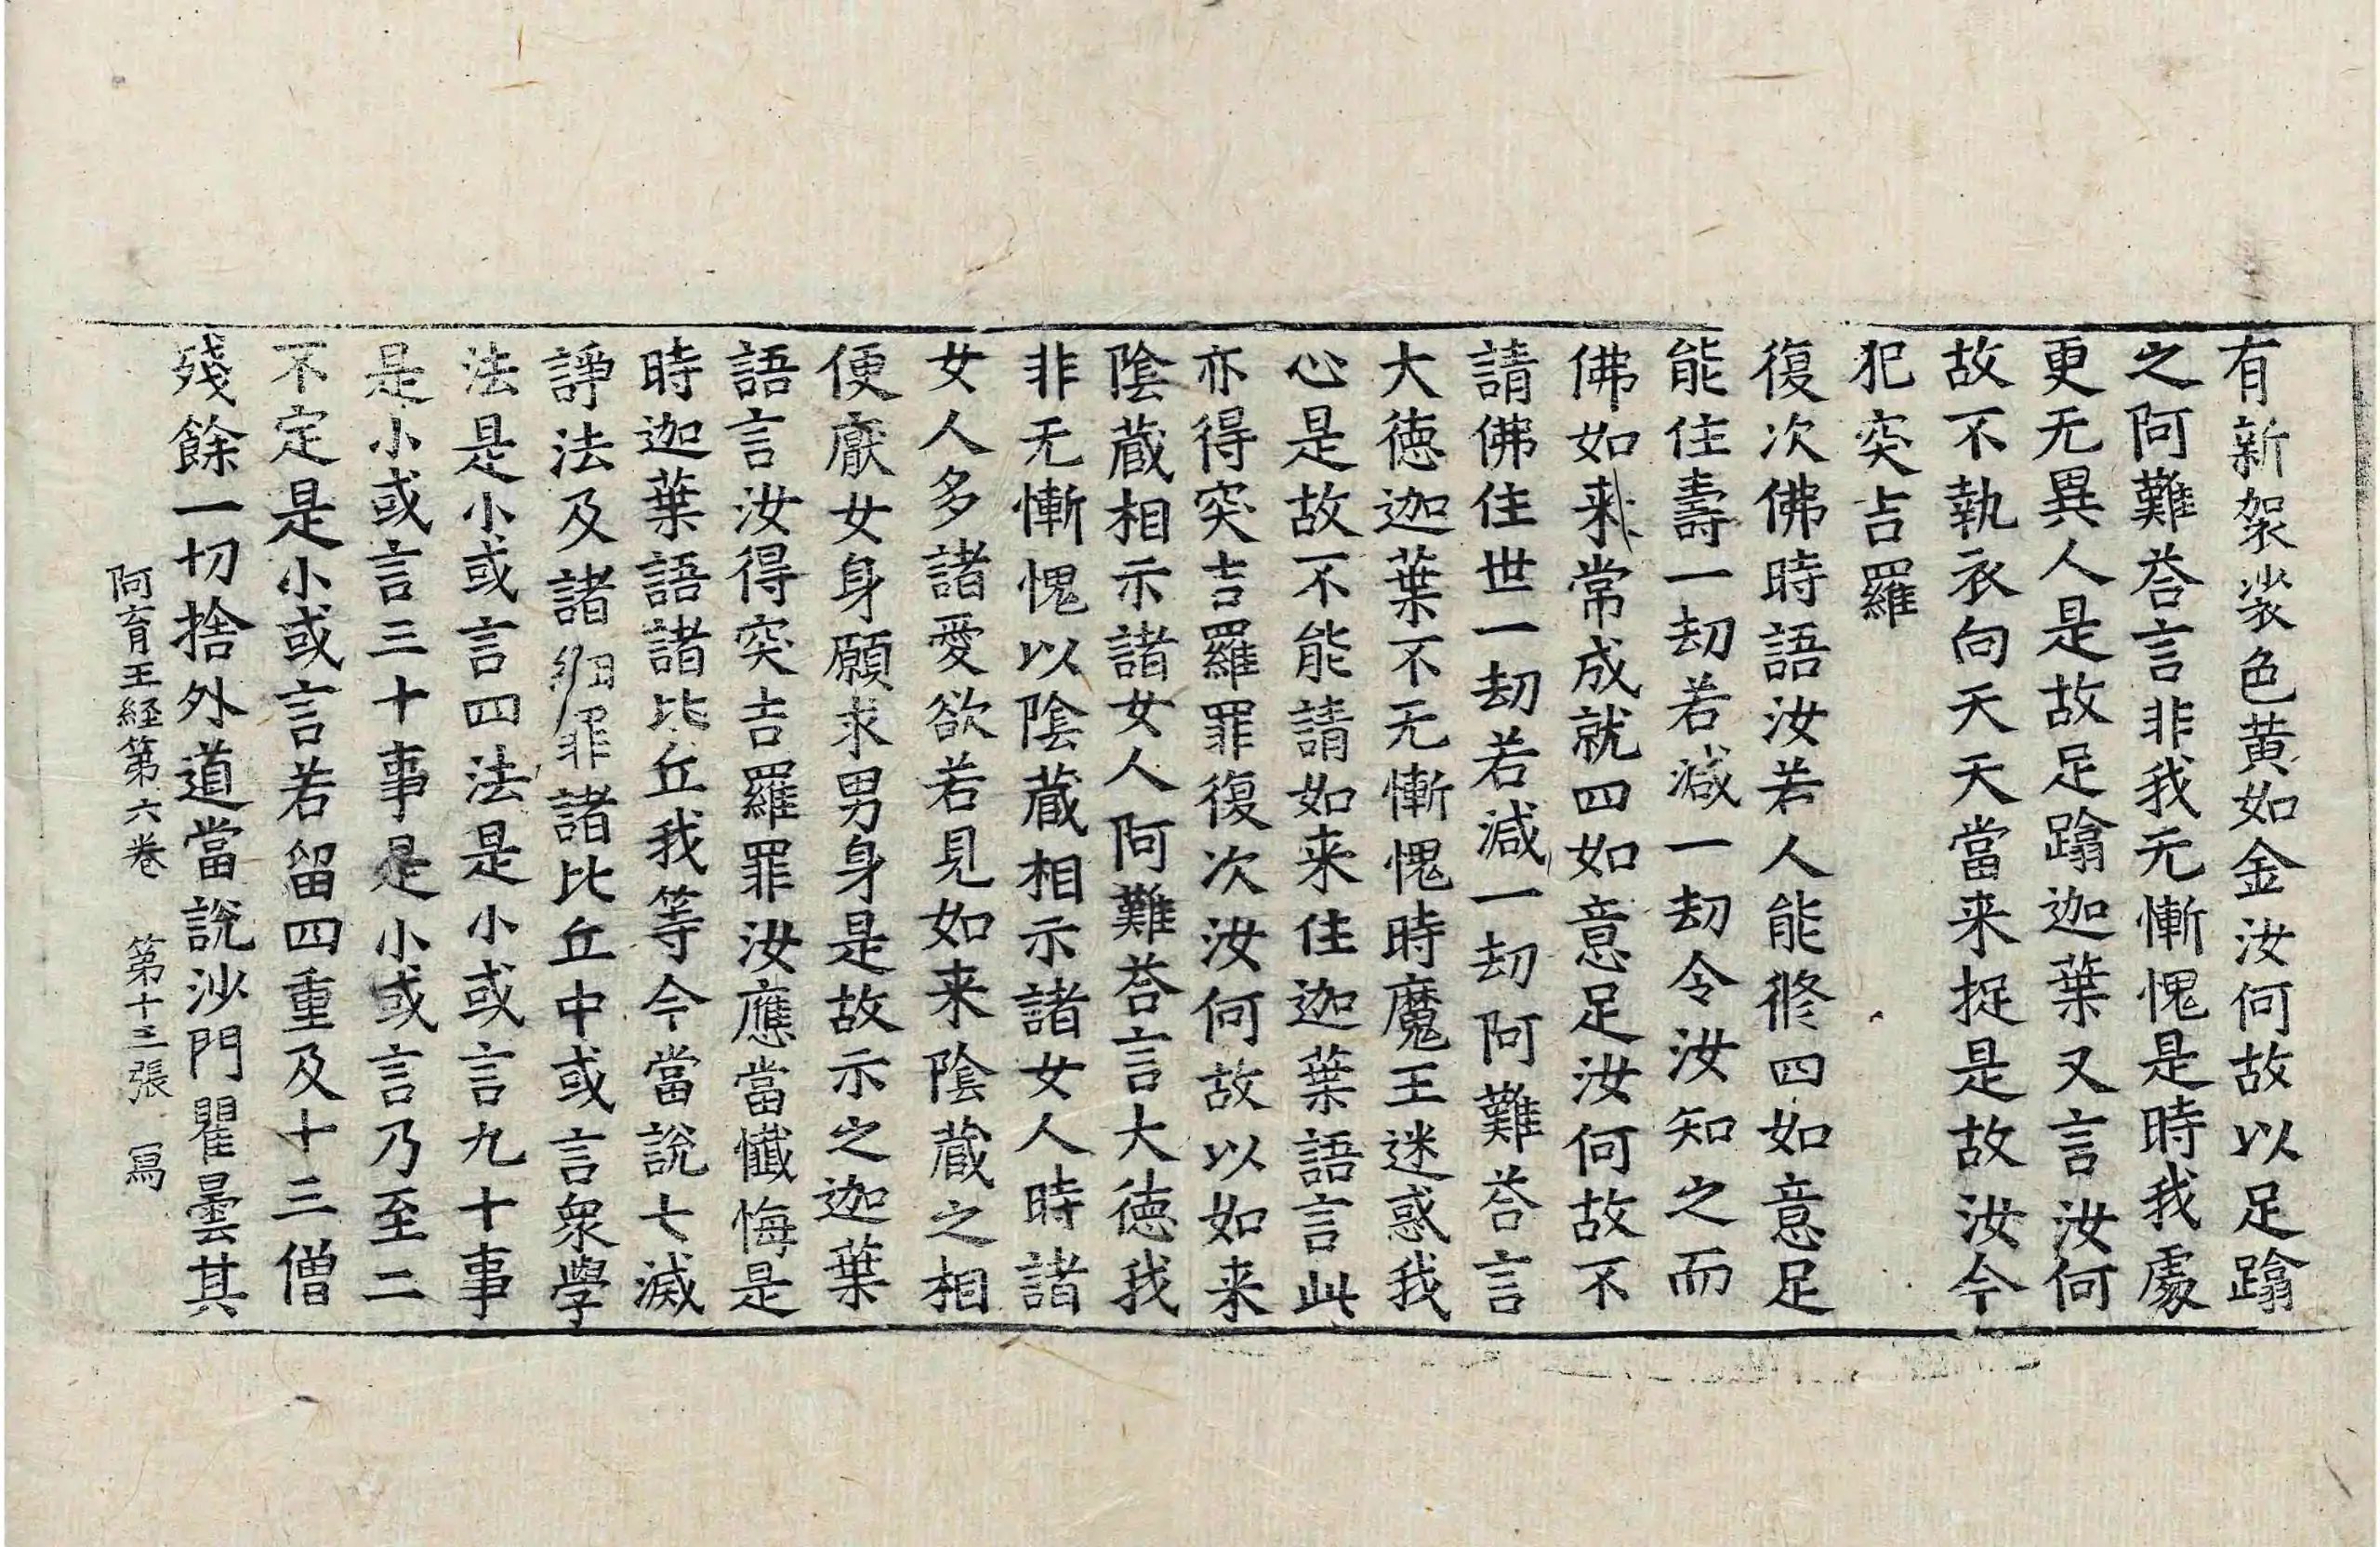 有新袈裟色黄如金汝何故以足蹹
之阿難荅言非我无慚愧是時我處
更无異人是故足蹹迦葉又言汝何
故不執衣向天天當来捉是故汝今
犯突吉羅
復次佛時語汝若人能修四如意足
能住壽一劫若減一劫令汝知之而
佛如来常成就四如意足汝何故不
請佛住世一劫若減一劫阿難荅言
大德迦葉不无慚愧時魔王迷惑我
心是故不能請如来住迦葉語言此
亦得突吉羅罪復次汝何故以如来
陰蔵相示諸女人阿難荅言大德我
非无慚愧以陰蔵相示諸女人時諸
女人多諸愛欲若見如来陰蔵之相
便厭女身願求男身是故示之迦葉
語言汝得突吉羅罪汝應當懺悔是
時迦葉語諸比丘我等今當說七滅
諍法及諸罪諸比丘中或言衆學
法是小或言四法是小或言九十事
是小或言三十事是小或言乃至二
不定是小或言若留四重及十三僧
殘餘一切捨外道當說沙門瞿曇其
阿育王経第六卷 第十三張 寫